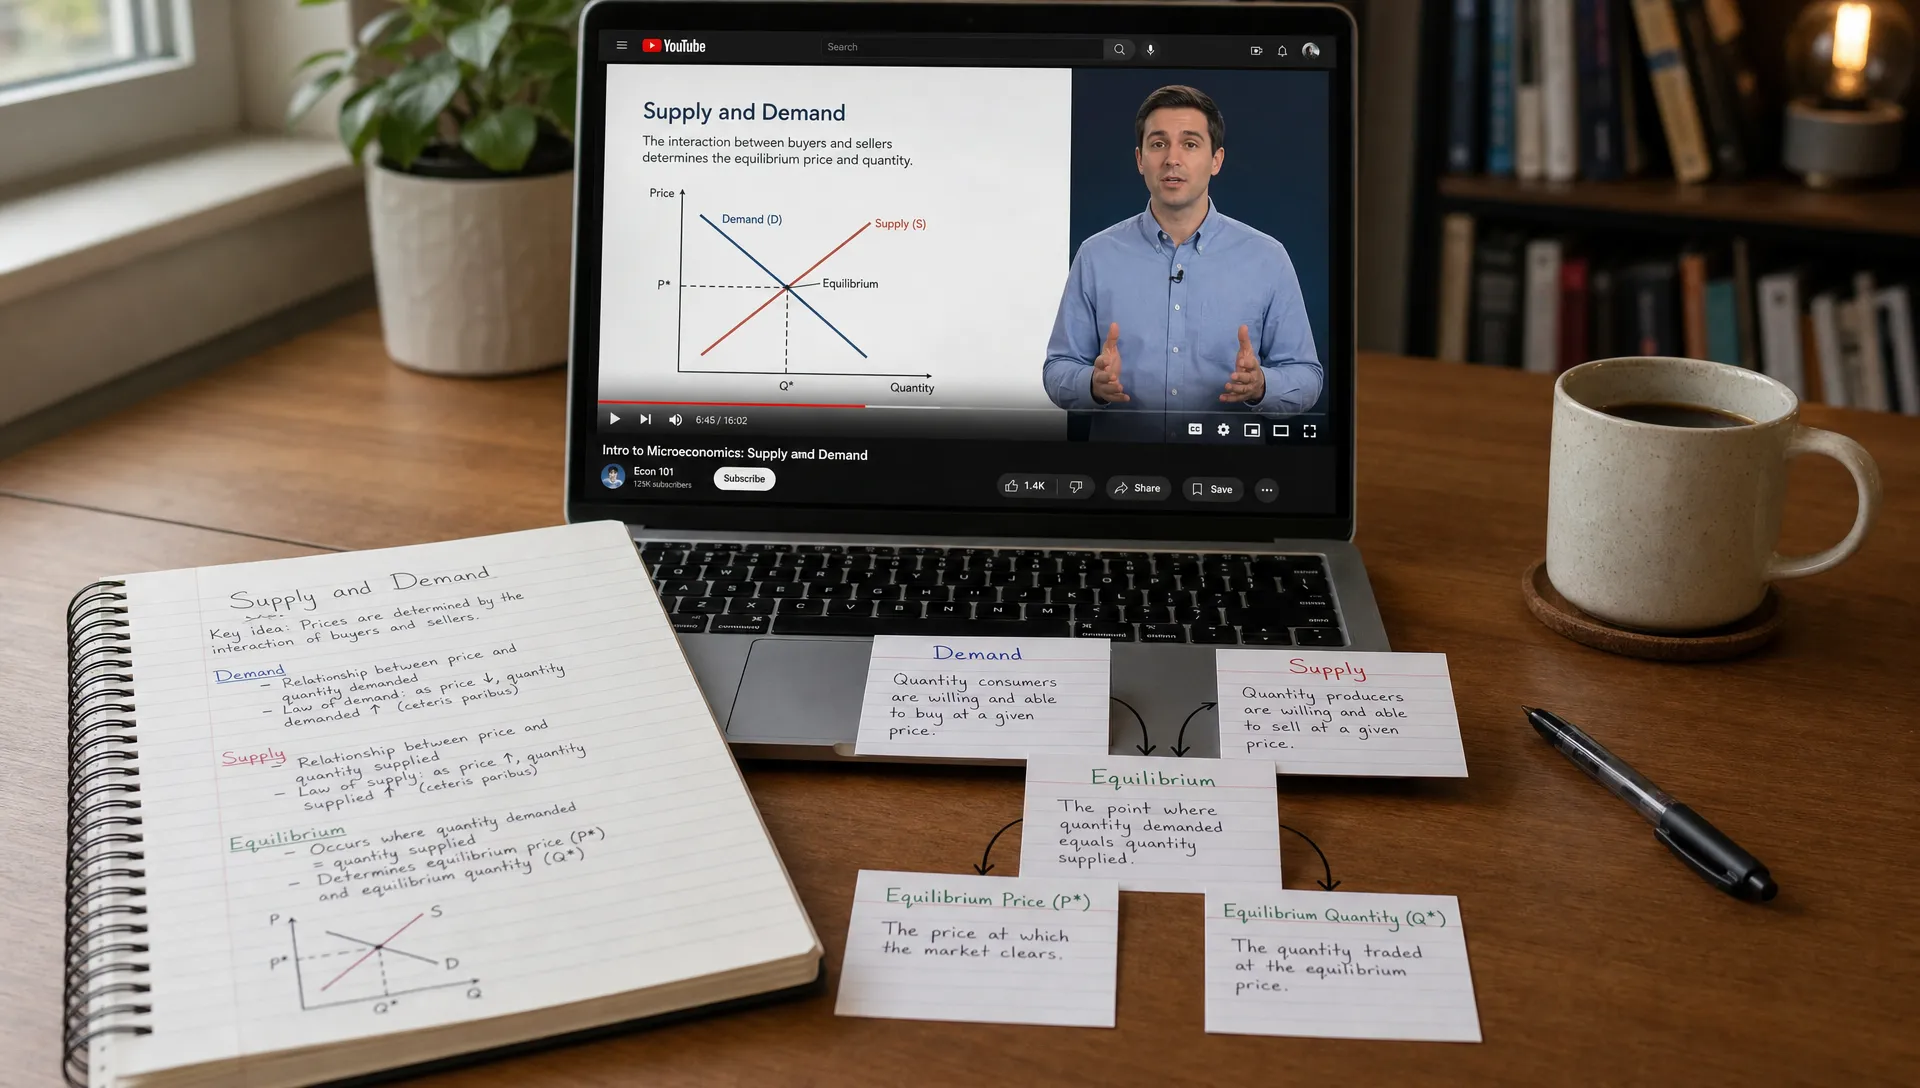 YouTube
Search
Supply and Demand
The interaction between buyers and sellers
determines the equilibrium price and quantity.
Price
Demand (D)
Supply (S)
P*
Equilibrium
Q*
Quantity
6:45 / 16:02
CC
Intro to Microeconomics: Supply and Demand
Econ 101
125K subscribers
Subscribe
1.4K
Share
Save
Supply and Demand
Key idea: Prices are determined by the
interaction of buyers and sellers.
Demand
- Relationship between price and
quantity demanded
- Law of demand: as price ↓, quantity
demanded ↑ (ceteris paribus)
Supply
- Relationship between price and
quantity supplied
- Law of supply: as price ↑, quantity
supplied ↑ (ceteris paribus)
Equilibrium
- Occurs where quantity demanded
= quantity supplied
- Determines equilibrium price (P*)
and equilibrium quantity (Q*)
P
S
P*
D
Q*
Q
Demand
Quantity consumers
are willing and able
to buy at a given
price.
Supply
Quantity producers
are willing and able
to sell at a given
price.
Equilibrium
The point where
quantity demanded
equals quantity
supplied.
Equilibrium Price (P*)
The price at which
the market clears.
Equilibrium Quantity (Q*)
The quantity traded
at the equilibrium
price.